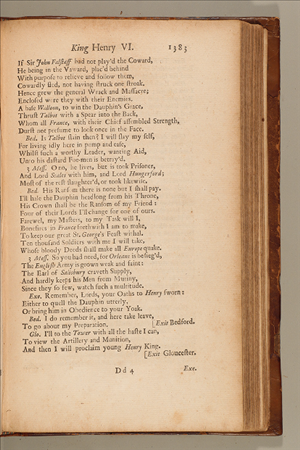 King Henry VI. 1383
If Sir John Falstaff had not play'd the Coward,
He being in the Vaward, plac'd behind
With purpose to relieve and follow them,
Cowardly fled, not having struck one stroak.
Hence grew the general Wrack and Massacre;
Enclosed were they with their Enemies.
A base Walloon, to win the Dauphin's Grace,
Thrust Talbot with a Spear into the Back,
Whom all France, with their Chief assembled Strength,
Durst not presume to look once in the Face.
Bed. Is Talbot slain then? I will slay my self,
For living idly here in pomp and ease,
Whilst such a worthy Leader, wanting Aid,
Unto his dastard Foe-men is betray'd.
3 Mess. O no, he lives, but is took Prisoner,
And Lord Scales with him, and Lord Hungerford;
Most of the rest slaughter'd, or took likewise.
Bed. His Ransom there is none but I shall pay.
I'll hale the Dauphin headlong from his Throne,
His Crown shall be the Ransom of my Friend:
Four of their Lords I'll change for one of ours.
Farewel, my Masters, to my Task will I,
Bonefires in France forthwith I am to make,
To keep our great St. George's Feast withal.
Ten thousand Soldiers with me I will take,
Whose bloody Deeds shall make all Europe quake.
3 Mess. So you had need, for Orleans is besieg'd,
The English Army is grown weak and faint:
The Earl of Salisbury craveth Supply,
And hardly keeps his Men from Mutiny,
Since they so few, watch such a multitude.
Exe. Remember, Lords, your Oaths to Henry sworn:
Either to quell the Dauphin utterly,
Or bring him in Obedience to your Yoak.
Bed. I do remember it, and here take leave,
To go about my Preparation. [Exit Bedford.
Glo. I'll to the Tower with all the haste I can,
To view the Artillery and Munition,
And then I will proclaim young Henry King.
[Exit Gloucester.
Dd 4 Exe.